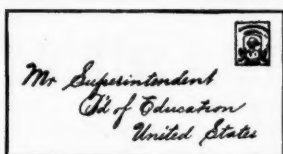 Mr Superintendent
B'd of Education
United States